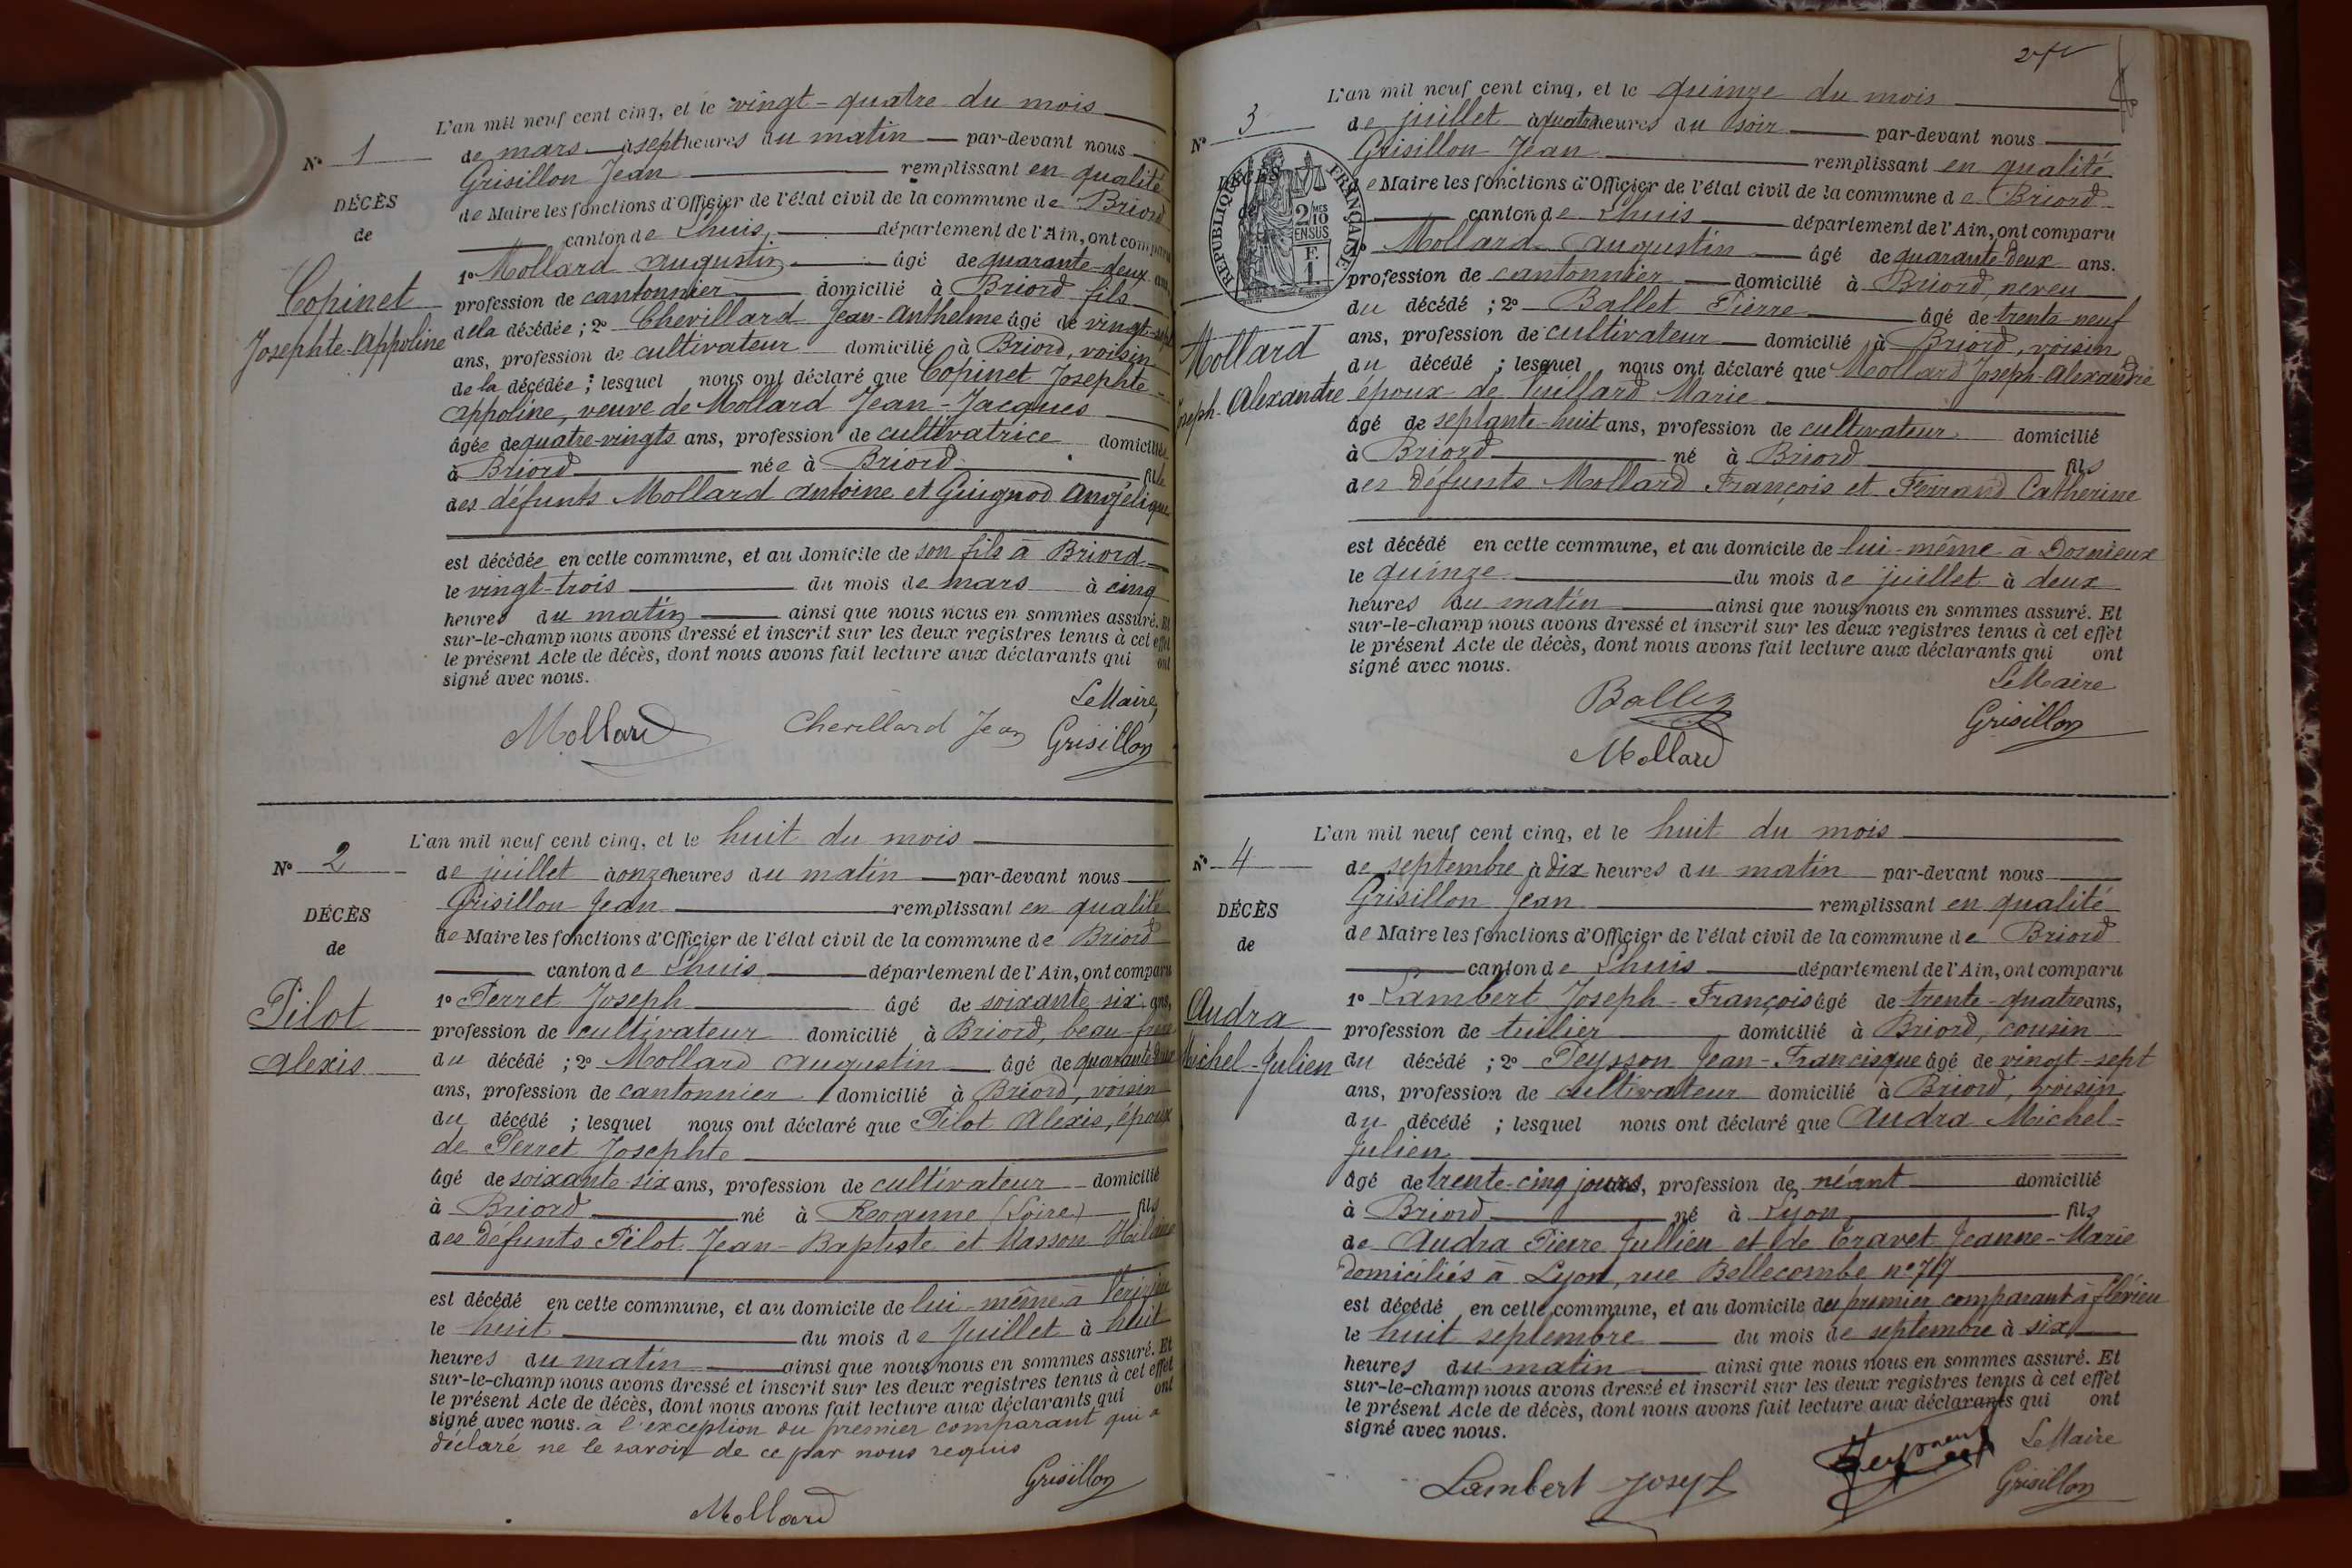 L'an mil neuf cent cinq, et le vingt-quatre du mois
N° 1
de mars à sept heures du matin par-devant nous
Grisillon Jean remplissant en qualité
DÉCÈS
de Maire les fonctions d'Officier de l'état civil de la commune de Briord
de
canton de Lhuis, département de l'Ain, ont comparu
1° Mollard Augustin âgé de quarante-deux ans
Copinet
profession de cantonnier domicilié à Briord fils
Josephte-Appoline
de la décédée ; 2° Chevillard Jean-Anthelme âgé de vingt-sept
ans, profession de cultivateur domicilié à Briord, voisin
de la décédée ; lesquel nous ont déclaré que Copinet Josephte-
Appoline, veuve de Mollard Jean-Jacques
âgée de quatre-vingts ans, profession de cultivatrice domiciliée
à Briord née à Briord fille
des défunts Mollard Antoine et Guignod Angélique
est décédée en cette commune, et au domicile de son fils à Briord
le vingt-trois du mois de mars à cinq
heures du matin ainsi que nous nous en sommes assuré. Et
sur-le-champ nous avons dressé et inscrit sur les deux registres tenus à cet effet
le présent Acte de décès, dont nous avons fait lecture aux déclarants qui ont
signé avec nous.
Le Maire,
Mollard Chevillard Jean Grisillon
L'an mil neuf cent cinq, et le huit du mois
N° 2
de juillet à onze heures du matin par-devant nous
Grisillon Jean remplissant en qualité
DÉCÈS
de Maire les fonctions d'Officier de l'état civil de la commune de Briord
de
canton de Lhuis département de l'Ain, ont comparu
1° Perret Joseph âgé de soixante-six ans,
Pilot
profession de cultivateur domicilié à Briord, beau-frère
Alexis
du décédé ; 2° Mollard Augustin âgé de quarante deux
ans, profession de cantonnier domicilié à Briord, voisin
du décédé ; lesquel nous ont déclaré que Pilot Alexis, époux
de Perret Josephte
âgé de soixante-six ans, profession de cultivateur domicilié
à Briord né à Roanne (Loire) fils
des défunts Pilot Jean-Baptiste et Masson
est décédé en cette commune, et au domicile de lui-même à
le huit du mois de Juillet à huit
heures du matin ainsi que nous nous en sommes assuré. Et
sur-le-champ nous avons dressé et inscrit sur les deux registres tenus à cet effet
le présent Acte de décès, dont nous avons fait lecture aux déclarants qui ont
signé avec nous. à l'exception du premier comparant qui a
déclaré ne le savoir de ce par nous requis
Grisillon
Mollard
L'an mil neuf cent cinq, et le quinze du mois
N° 3
de juillet à quatre heures du soir par-devant nous
Grisillon Jean remplissant en qualité
DÉCÈS
de
RÉPUBLIQUE FRANÇAISE
2/10 MES
EN SUS
F.
1
e Maire les fonctions d'Officier de l'état civil de la commune de Briord
canton de Lhuis département de l'Ain, ont comparu
Mollard Augustin âgé de quarante deux ans.
profession de cantonnier domicilié à Briord, neveu
du décédé ; 2° Ballet Pierre âgé de trente-neuf
Mollard
ans, profession de cultivateur domicilié à Briord, voisin
du décédé ; lesquel nous ont déclaré que Mollard Joseph-Alexandre
Joseph-Alexandre
époux de Vuillard Marie
âgé de septante-huit ans, profession de cultivateur domicilié
à Briord né à Briord fils
des défunts Mollard François et Ferrand Catherine
est décédé en cette commune, et au domicile de lui-même à Dornieux
le quinze du mois de juillet à deux
heures du matin ainsi que nous nous en sommes assuré. Et
sur-le-champ nous avons dressé et inscrit sur les deux registres tenus à cet effet
le présent Acte de décès, dont nous avons fait lecture aux déclarants qui ont
signé avec nous.
Le Maire
Ballet Grisillon
Mollard
L'an mil neuf cent cinq, et le huit du mois
N° 4
de septembre à dix heures du matin par-devant nous
Grisillon Jean remplissant en qualité
DÉCÈS
de Maire les fonctions d'Officier de l'état civil de la commune de Briord
de
canton de Lhuis département de l'Ain, ont comparu
1° Lambert Joseph-François âgé de trente-quatre ans,
Audra
profession de tuilier domicilié à Briord, cousin
Michel-Julien
du décédé ; 2° Peysson Jean-Francisque âgé de vingt-sept
ans, profession de cultivateur domicilié à Briord, voisin
du décédé ; lesquel nous ont déclaré que Audra Michel-
Julien
âgé de trente-cinq jours, profession de néant domicilié
à Briord né à Lyon fils
de Audra Pierre Jullien et de Cravet Jeanne-Marie
domiciliés à Lyon, rue Bellecombe n°
est décédé en cette commune, et au domicile du premier comparant à Flévieu
le huit septembre du mois de septembre à six
heures du matin ainsi que nous nous en sommes assuré. Et
sur-le-champ nous avons dressé et inscrit sur les deux registres tenus à cet effet
le présent Acte de décès, dont nous avons fait lecture aux déclarants qui ont
signé avec nous.
Le Maire
Lambert Joseph Grisillon